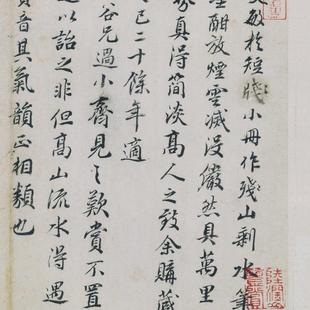 文敏於短牋小冊作殘山剩水筆
墨酣放煙雲滅沒儼然具萬里
真得簡淡高人之致余購藏
已二十餘年適
谷兄過小齋見之歎賞不置
以詒之非但高山流水得遇
音其氣韻正相類也